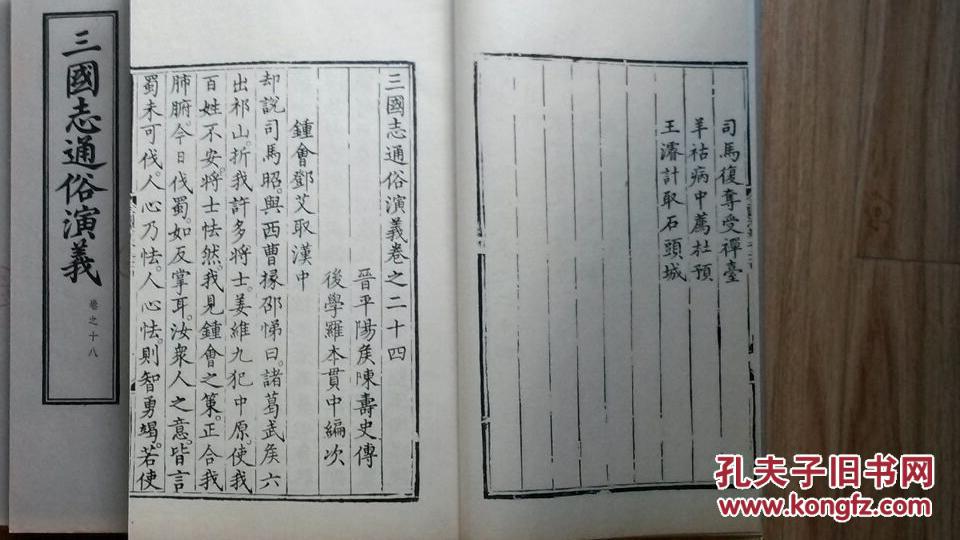 三國志通俗演義
卷之十八
司馬復奪受禪臺
羊祜病中薦杜預
王濬計取石頭城
三國志通俗演義卷之二十四
晉平陽矦陳壽史傳
後學羅本貫中編次
鍾會鄧艾取漢中
却說司馬昭。與西曹掾邵悌曰。諸葛武矦六
出祁山。折我許多將士。姜維九犯中原。使我
百姓不安。將士怯然。我見鍾會之策。正合我
肺腑。今日伐蜀。如反掌耳。汝衆人之意。皆言
蜀未可伐。人心乃怯。人心怯。則智勇竭。若使
孔夫子旧书网
www.kongfz.com